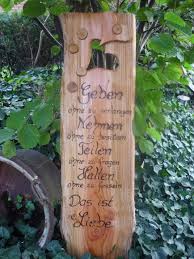 Geben
ohne zu verlangen
Nehmen
ohne zu besitzen
Teilen
ohne zu fragen
Halten
ohne zu fesseln
Das ist
Liebe